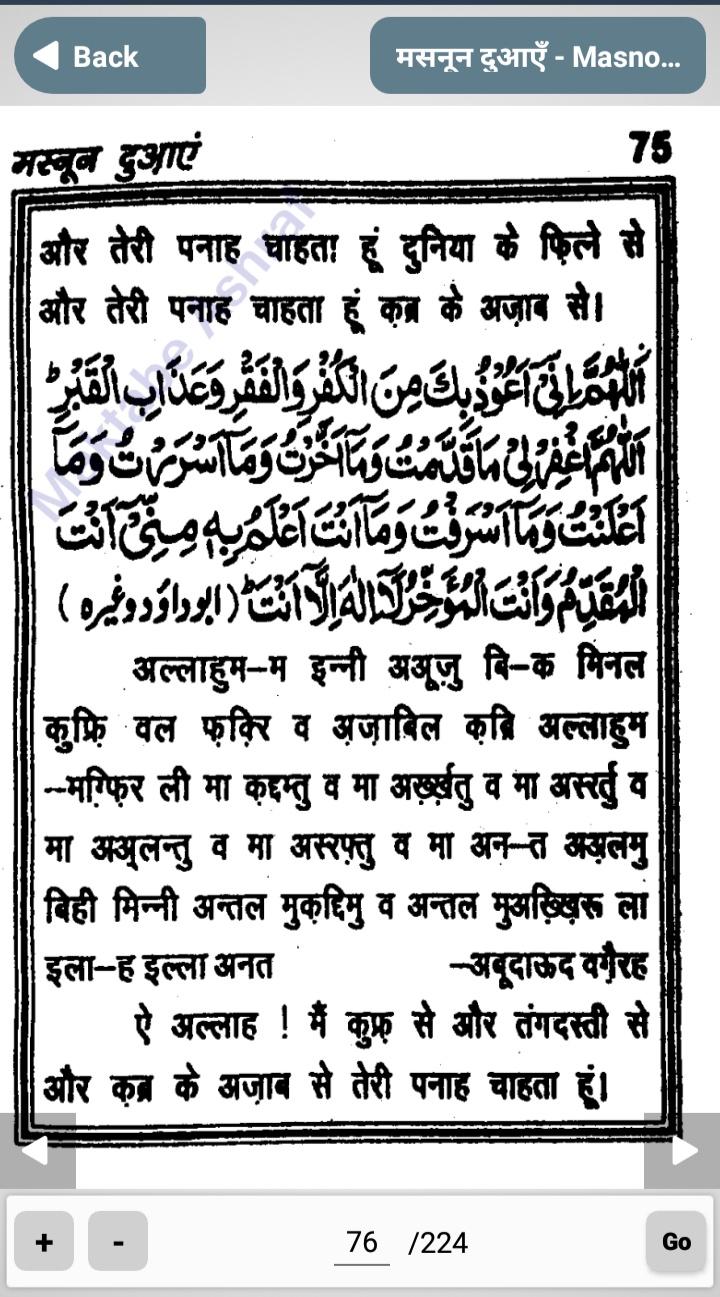 Back
मसनून दुआएँ - Masno...
मस्नून दुआएं 75
और तेरी पनाह चाहता हूं दुनिया के फ़ित्ने से
और तेरी पनाह चाहता हूं क़ब्र के अज़ाब से।
اَللّٰهُمَّ اِنِّیْۤ اَعُوْذُ بِكَ مِنَ الْكُفْرِ وَالْفَقْرِ وَعَذَابِ الْقَبْرِ ؕ
اَللّٰهُمَّ اغْفِرْ لِیْ مَا قَدَّمْتُ وَمَاۤ اَخَّرْتُ وَمَاۤ اَسْرَرْتُ وَمَاۤ
اَعْلَنْتُ وَمَاۤ اَسْرَفْتُ وَمَاۤ اَنْتَ اَعْلَمُ بِهٖ مِنِّیْۤ اَنْتَ
الْمُقَدِّمُ وَاَنْتَ الْمُؤَخِّرُ لَاۤ اِلٰهَ اِلَّاۤ اَنْتَ ؕ (ابوداؤد وغیره)
अल्लाहुम-म इन्नी अअूज़ु बि-क मिनल
कुफ़्रि वल फ़क़्रि व अ़ज़ाबिल क़ब्रि अल्लाहुम
-मग़्फ़िर ली मा क़द्दम्तु व मा अख़्ख़र्तु व मा अस्रर्तु व
मा अअ़्लन्तु व मा अस्रफ़्तु व मा अन-त अअ़लमु
बिही मिन्नी अन्तल मुक़द्दिमु व अन्तल मुअख़्ख़िरू ला
इला-ह इल्ला अनत -अबूदाऊद वग़ैरह
ऐ अल्लाह ! मैं कुफ़्र से और तंगदस्ती से
और क़ब्र के अज़ाब से तेरी पनाह चाहता हूं।
+ - 76 /224 Go